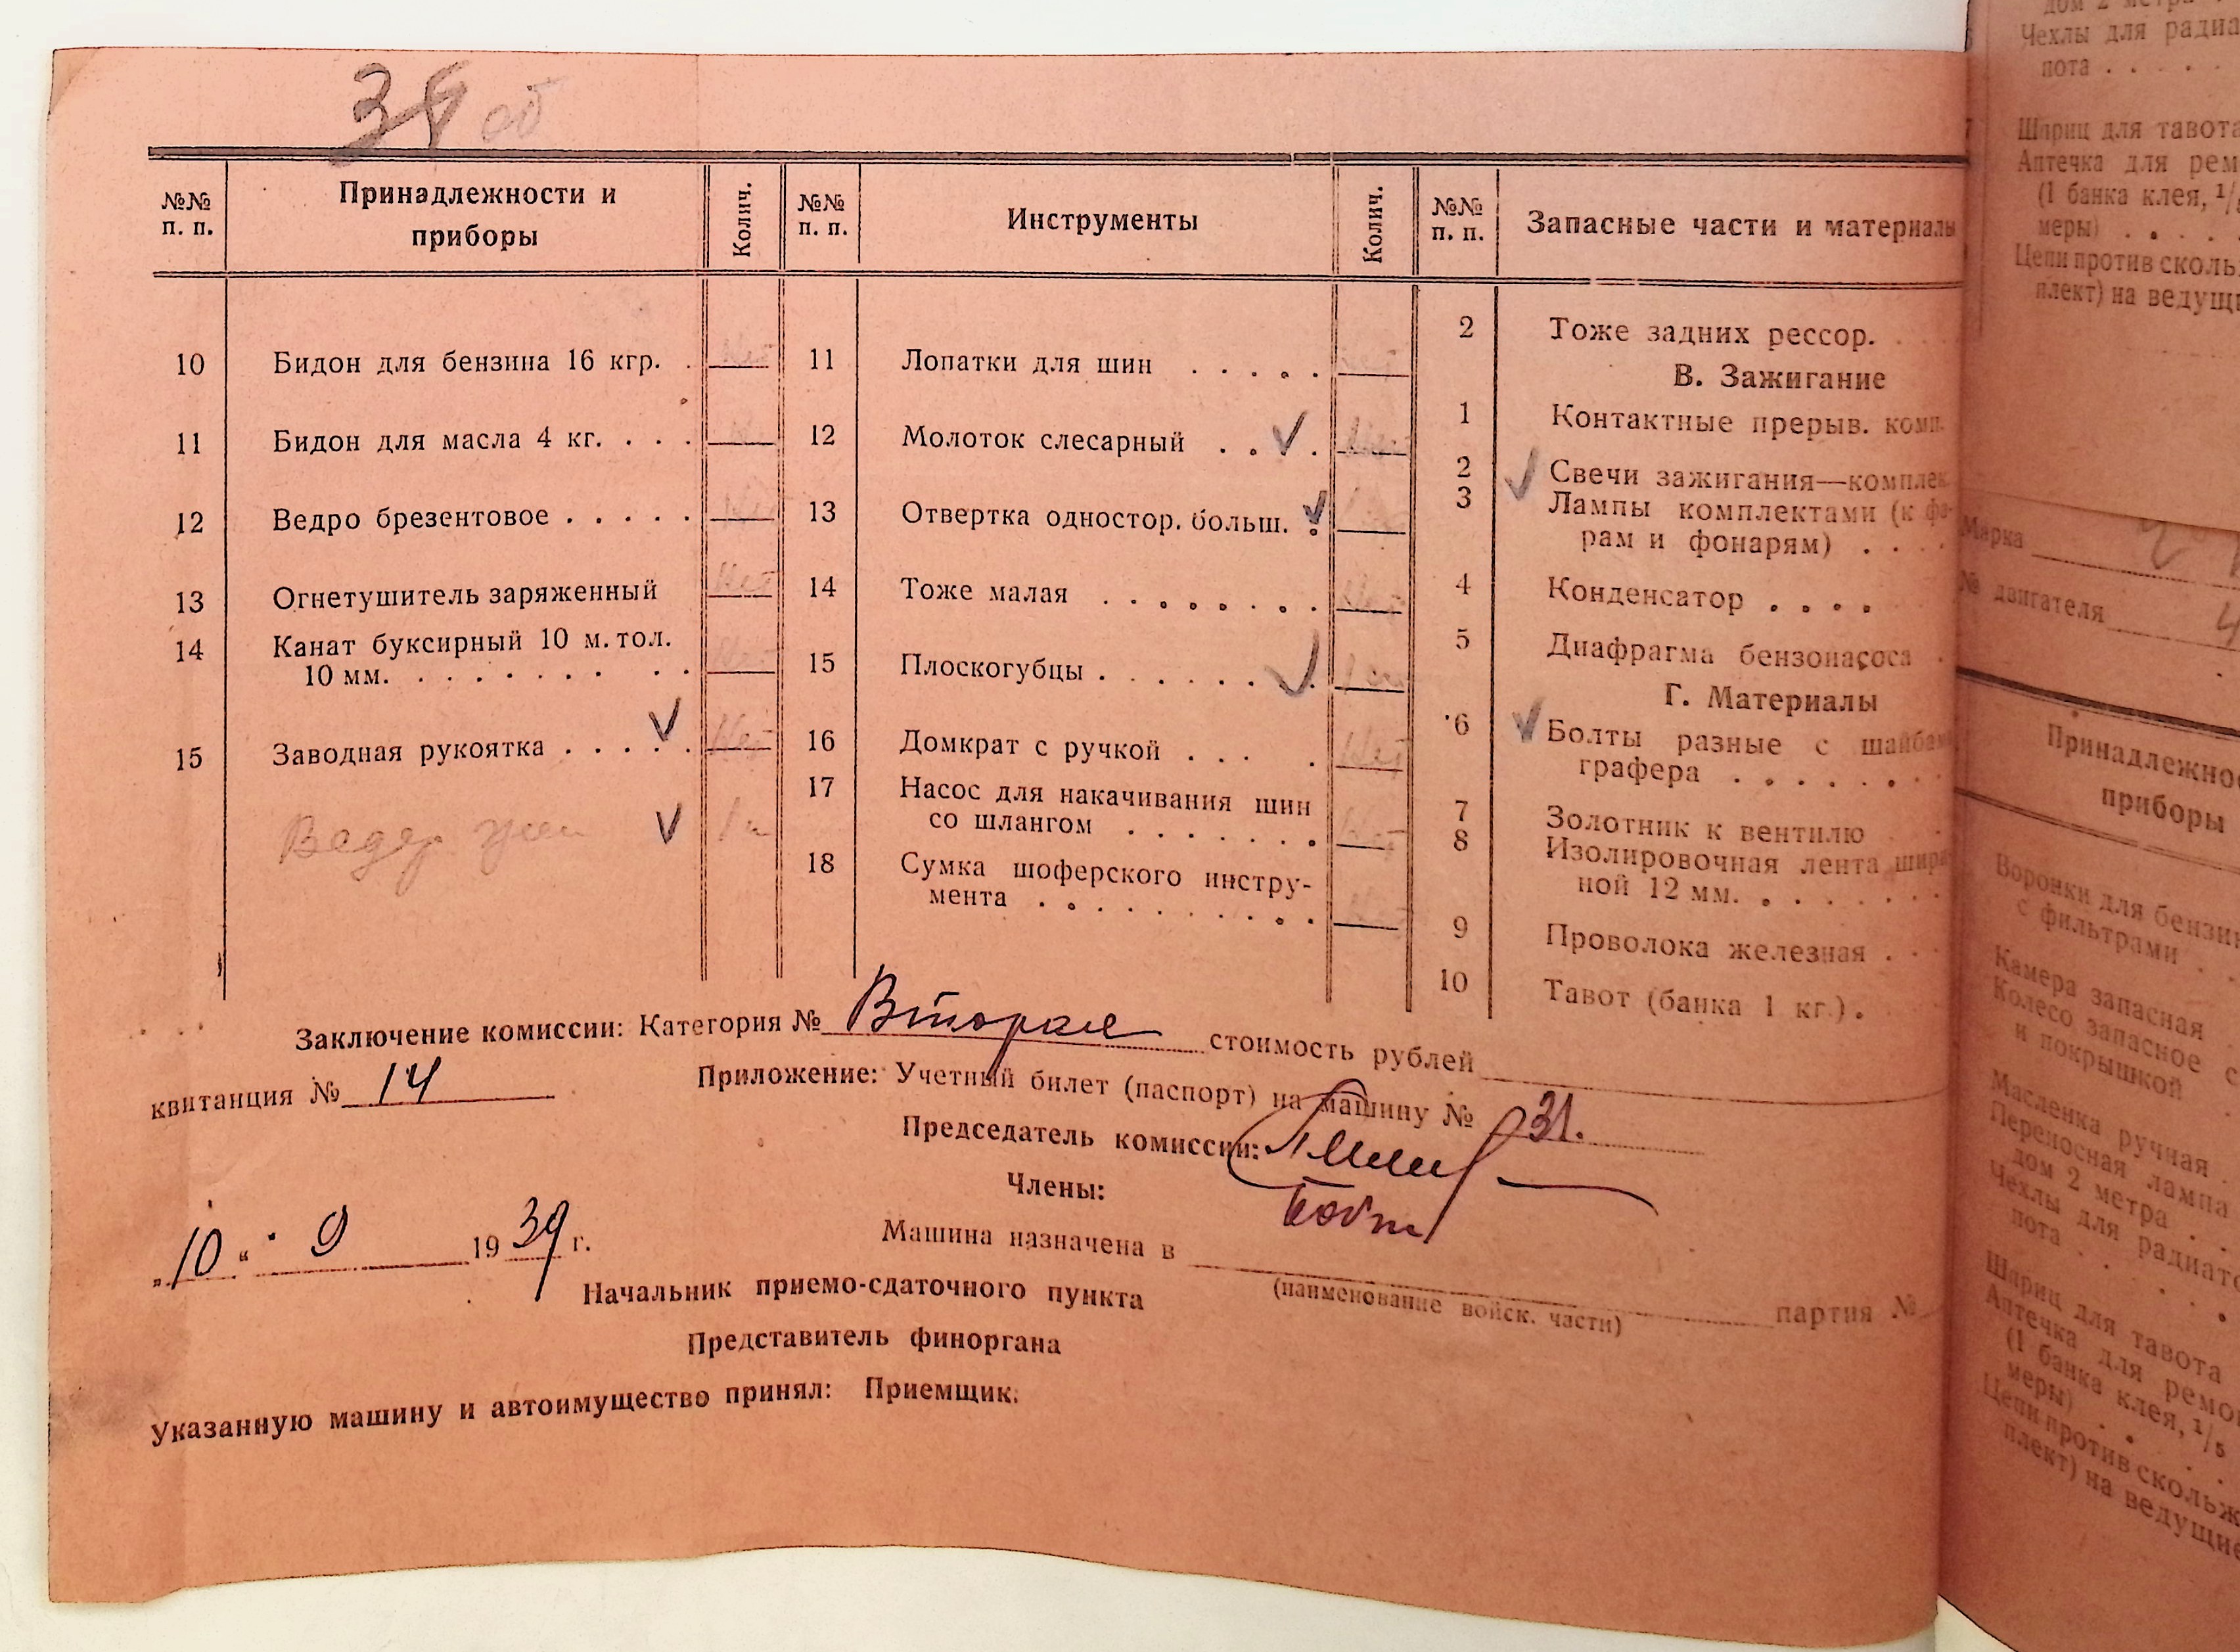 об
№№ п. п. Принадлежности и приборы Колич. №№ п. п. Инструменты Колич. №№ п. п. Запасные части и материалы
10 Бидон для бензина 16 кгр. . Нет
11 Бидон для масла 4 кг. . . .
12 Ведро брезентовое . . . . . Нет
13 Огнетушитель заряженный Нет
14 Канат буксирный 10 м. тол.
10 мм. . . . . . . . . . Нет
15 Заводная рукоятка . . . . . Нет
11 Лопатки для шин . . . . . Нет
12 Молоток слесарный . . . Нет
13 Отвертка одностор. больш. .
14 Тоже малая . . . . . . . . Нет
15 Плоскогубцы . . . . . . .
16 Домкрат с ручкой . . . . Нет
17 Насос для накачивания шин
со шлангом . . . . . . . Нет
18 Сумка шоферского инстру-
мента . . . . . . . . . . Нет
2 Тоже задних рессор.
В. Зажигание
1 Контактные прерыв. комп.
2 Свечи зажигания—комплек
3 Лампы комплектами (к фа-
рам и фонарям) . . . .
4 Конденсатор . . . .
5 Диафрагма бензонасоса .
Г. Материалы
6 Болты разные с шайбам
графера . . . . . . .
7 Золотник к вентилю
8 Изолировочная лента шири
ной 12 мм. . . . . . .
9 Проволока железная . .
10 Тавот (банка 1 кг.) .
Заключение комиссии: Категория № Вторая стоимость рублей
квитанция № 14 Приложение: Учетный билет (паспорт) на машину № 31.
Председатель комиссии:
Члены:
„10“ 9 1939 г.
Машина назначена в
(наименование войск. части) партия №
Начальник приемо-сдаточного пункта
Представитель финоргана
Указанную машину и автоимущество принял: Приемщик.
дом 2 метра
Чехлы для радиа
пота . . . .
Шприц для тавота
Аптечка для рем
(1 банка клея, 1/5
меры) . . .
Цепи против сколь
плект) на ведущи
Марка
№ двигателя
Принадлежно
приборы
Воронки для бензин
с фильтрами . .
Камера запасная
Колесо запасное с
и покрышкой
Масленка ручная .
Переносная лампа
дом 2 метра . .
Чехлы для радиато
пота . . . .
Шприц для тавота
Аптечка для ремо
(1 банка клея, 1/5
меры) . . .
Цепи против скольж
плект) на ведущие